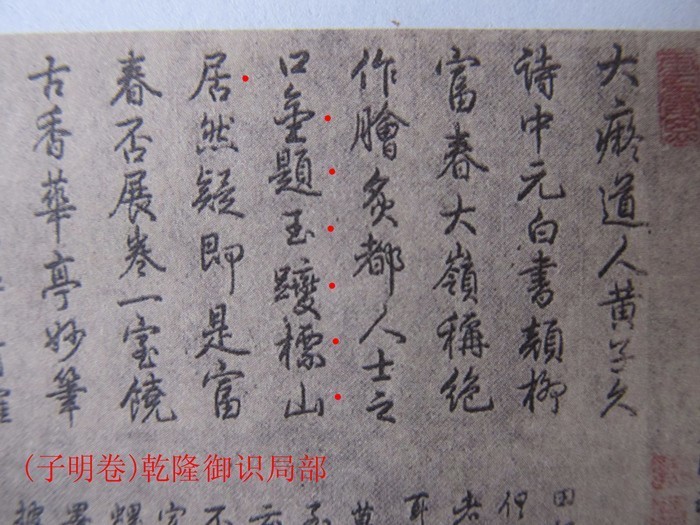 大癡道人黄子久
詩中元白書顏柳
富春大嶺稱絶
作膾炙都人士之
口金題玉躞標山
居然疑即是富
春否展卷一室饒
古香華亭妙筆
(子明卷)乾隆御识局部